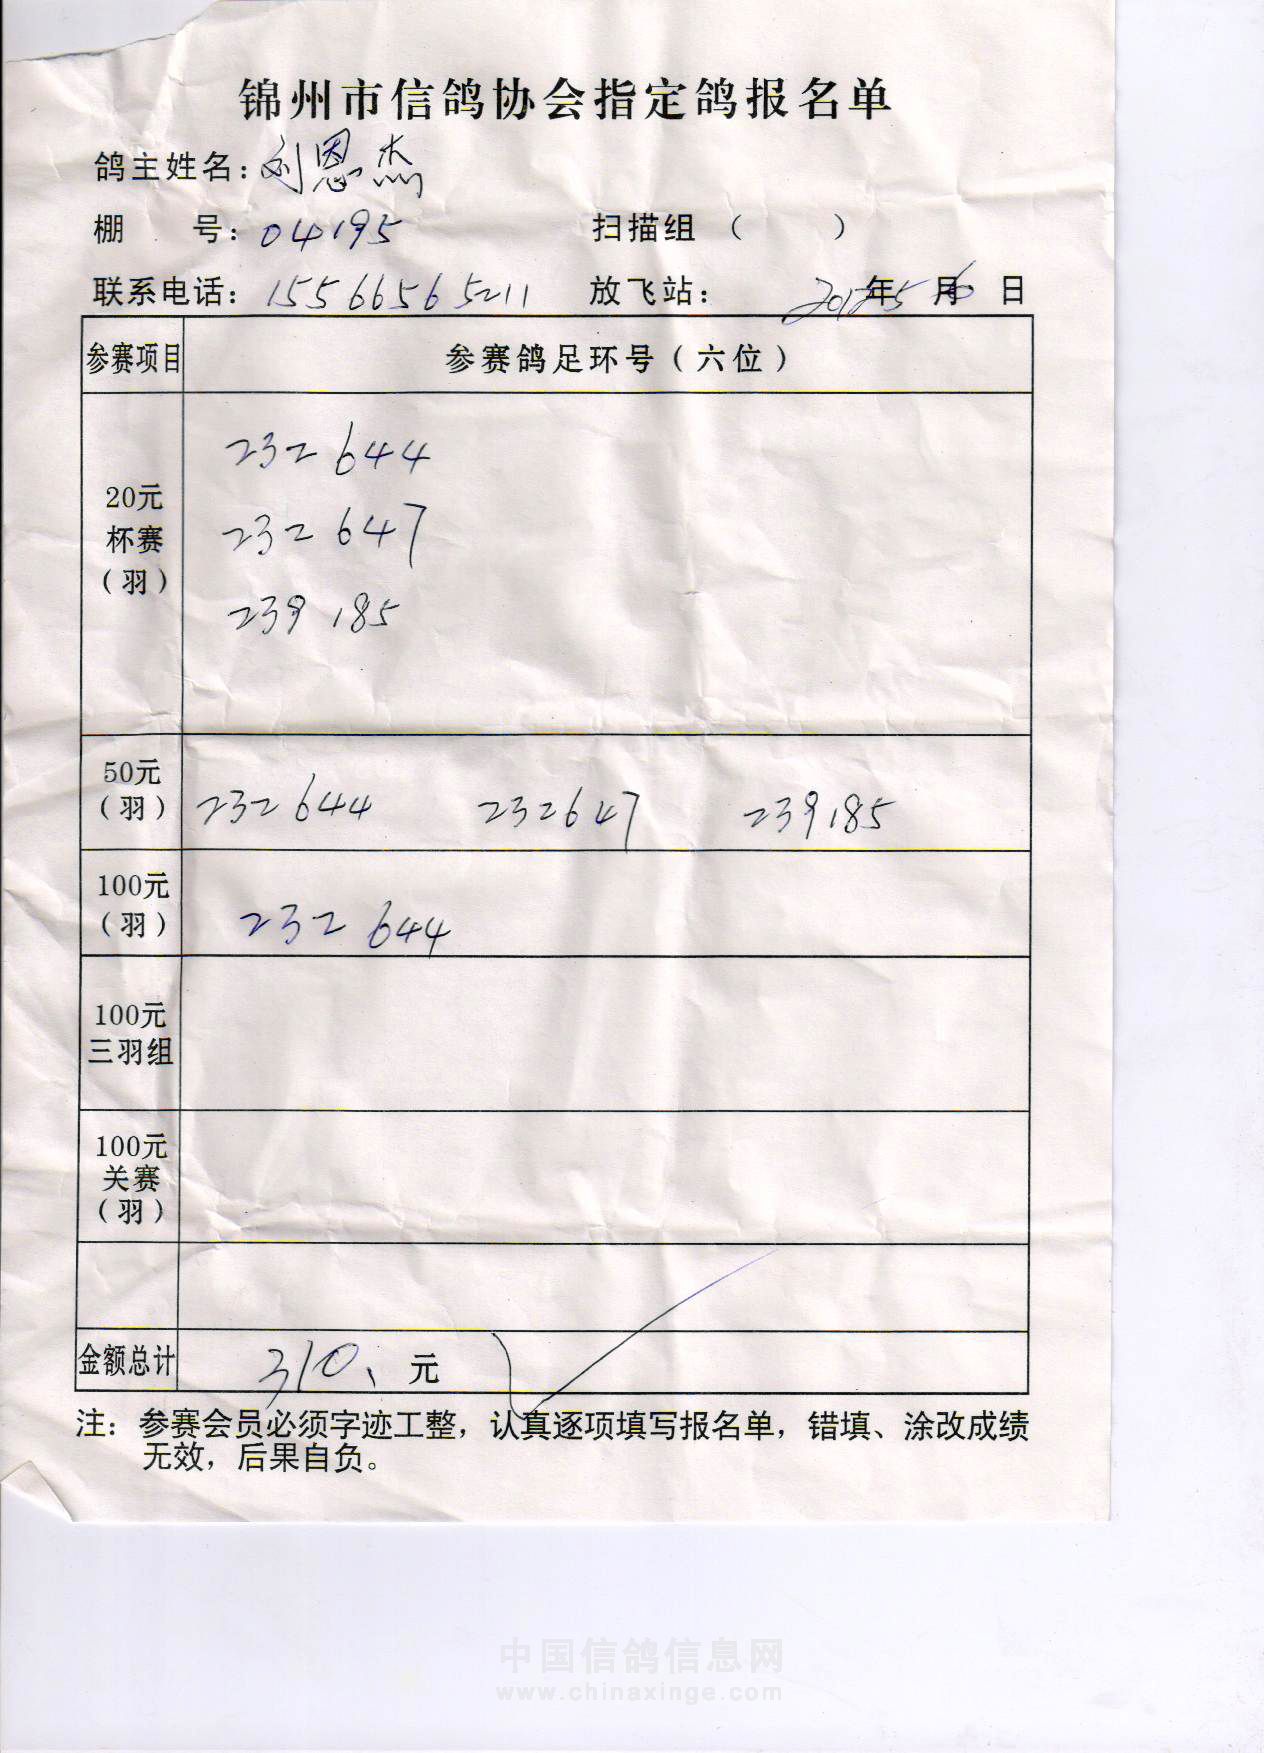 锦州市信鸽协会指定鸽报名单
鸽主姓名：刘恩杰
棚 号：04195 扫描组（ ）
联系电话：15566565211 放飞站： 2012年5月6日
参赛项目 参赛鸽足环号（六位）
20元
杯赛
（羽）
232644
232647
239185
50元
（羽）
232644 232647 239185
100元
（羽）
232644
100元
三羽组
100元
关赛
（羽）
金额总计 310、元
注：参赛会员必须字迹工整，认真逐项填写报名单，错填、涂改成绩
无效，后果自负。
中国信鸽信息网
www.chinaxinge.com